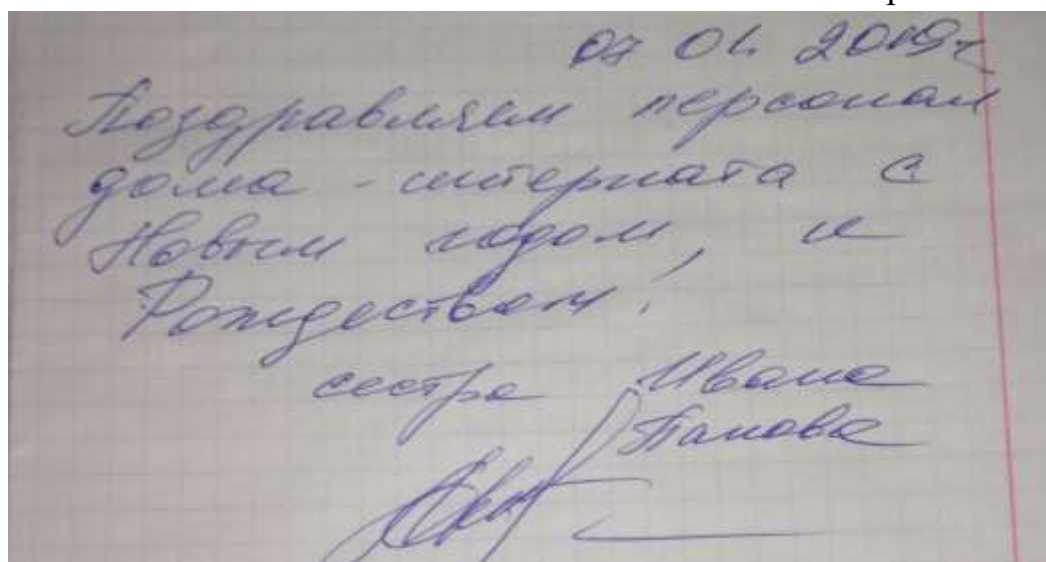 07 01 2019г
Поздравляем персонал
дома-интерната с
Новым годом, и
Рождеством!
сестра Ивана
Панова